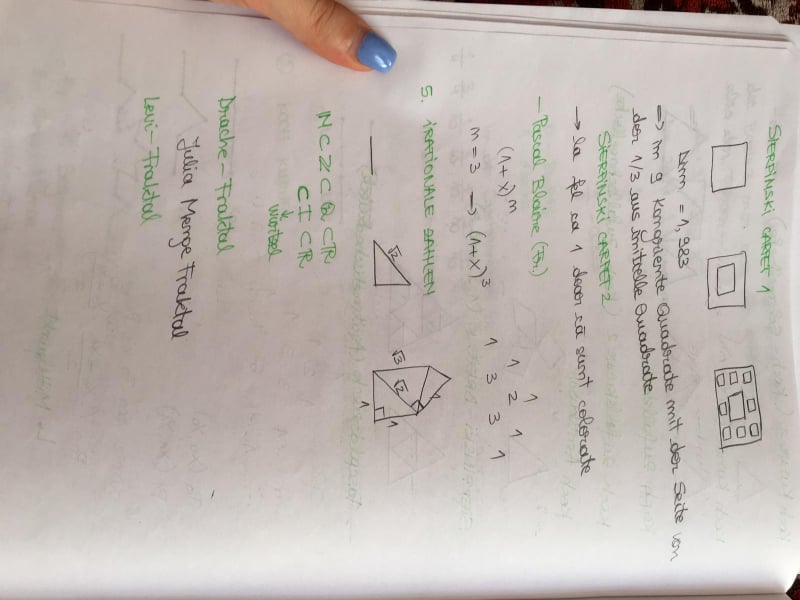 SIERPINSKI CARPET 1
Dim = 1,983
=> in 9 kongriente Quadrate mit der Seite von
der 1/3 aus initzelle Quadrate
SIERPINSKI CARPET 2
→ la fel ca 1 doar că sunt colorate
- Pascal Blaise (Fr.)
1
(1+x)^m
1 2 1
m = 3 → (1+x)^3
1 3 3 1
5. IRATIONALE ZAHLEN
√2
√3 √2 1
1
1
N C Z C Q C R
C I C R
↓
wurtzel
Drache - Fraktal
Julia Menge Fraktal
Levi - Fraktal